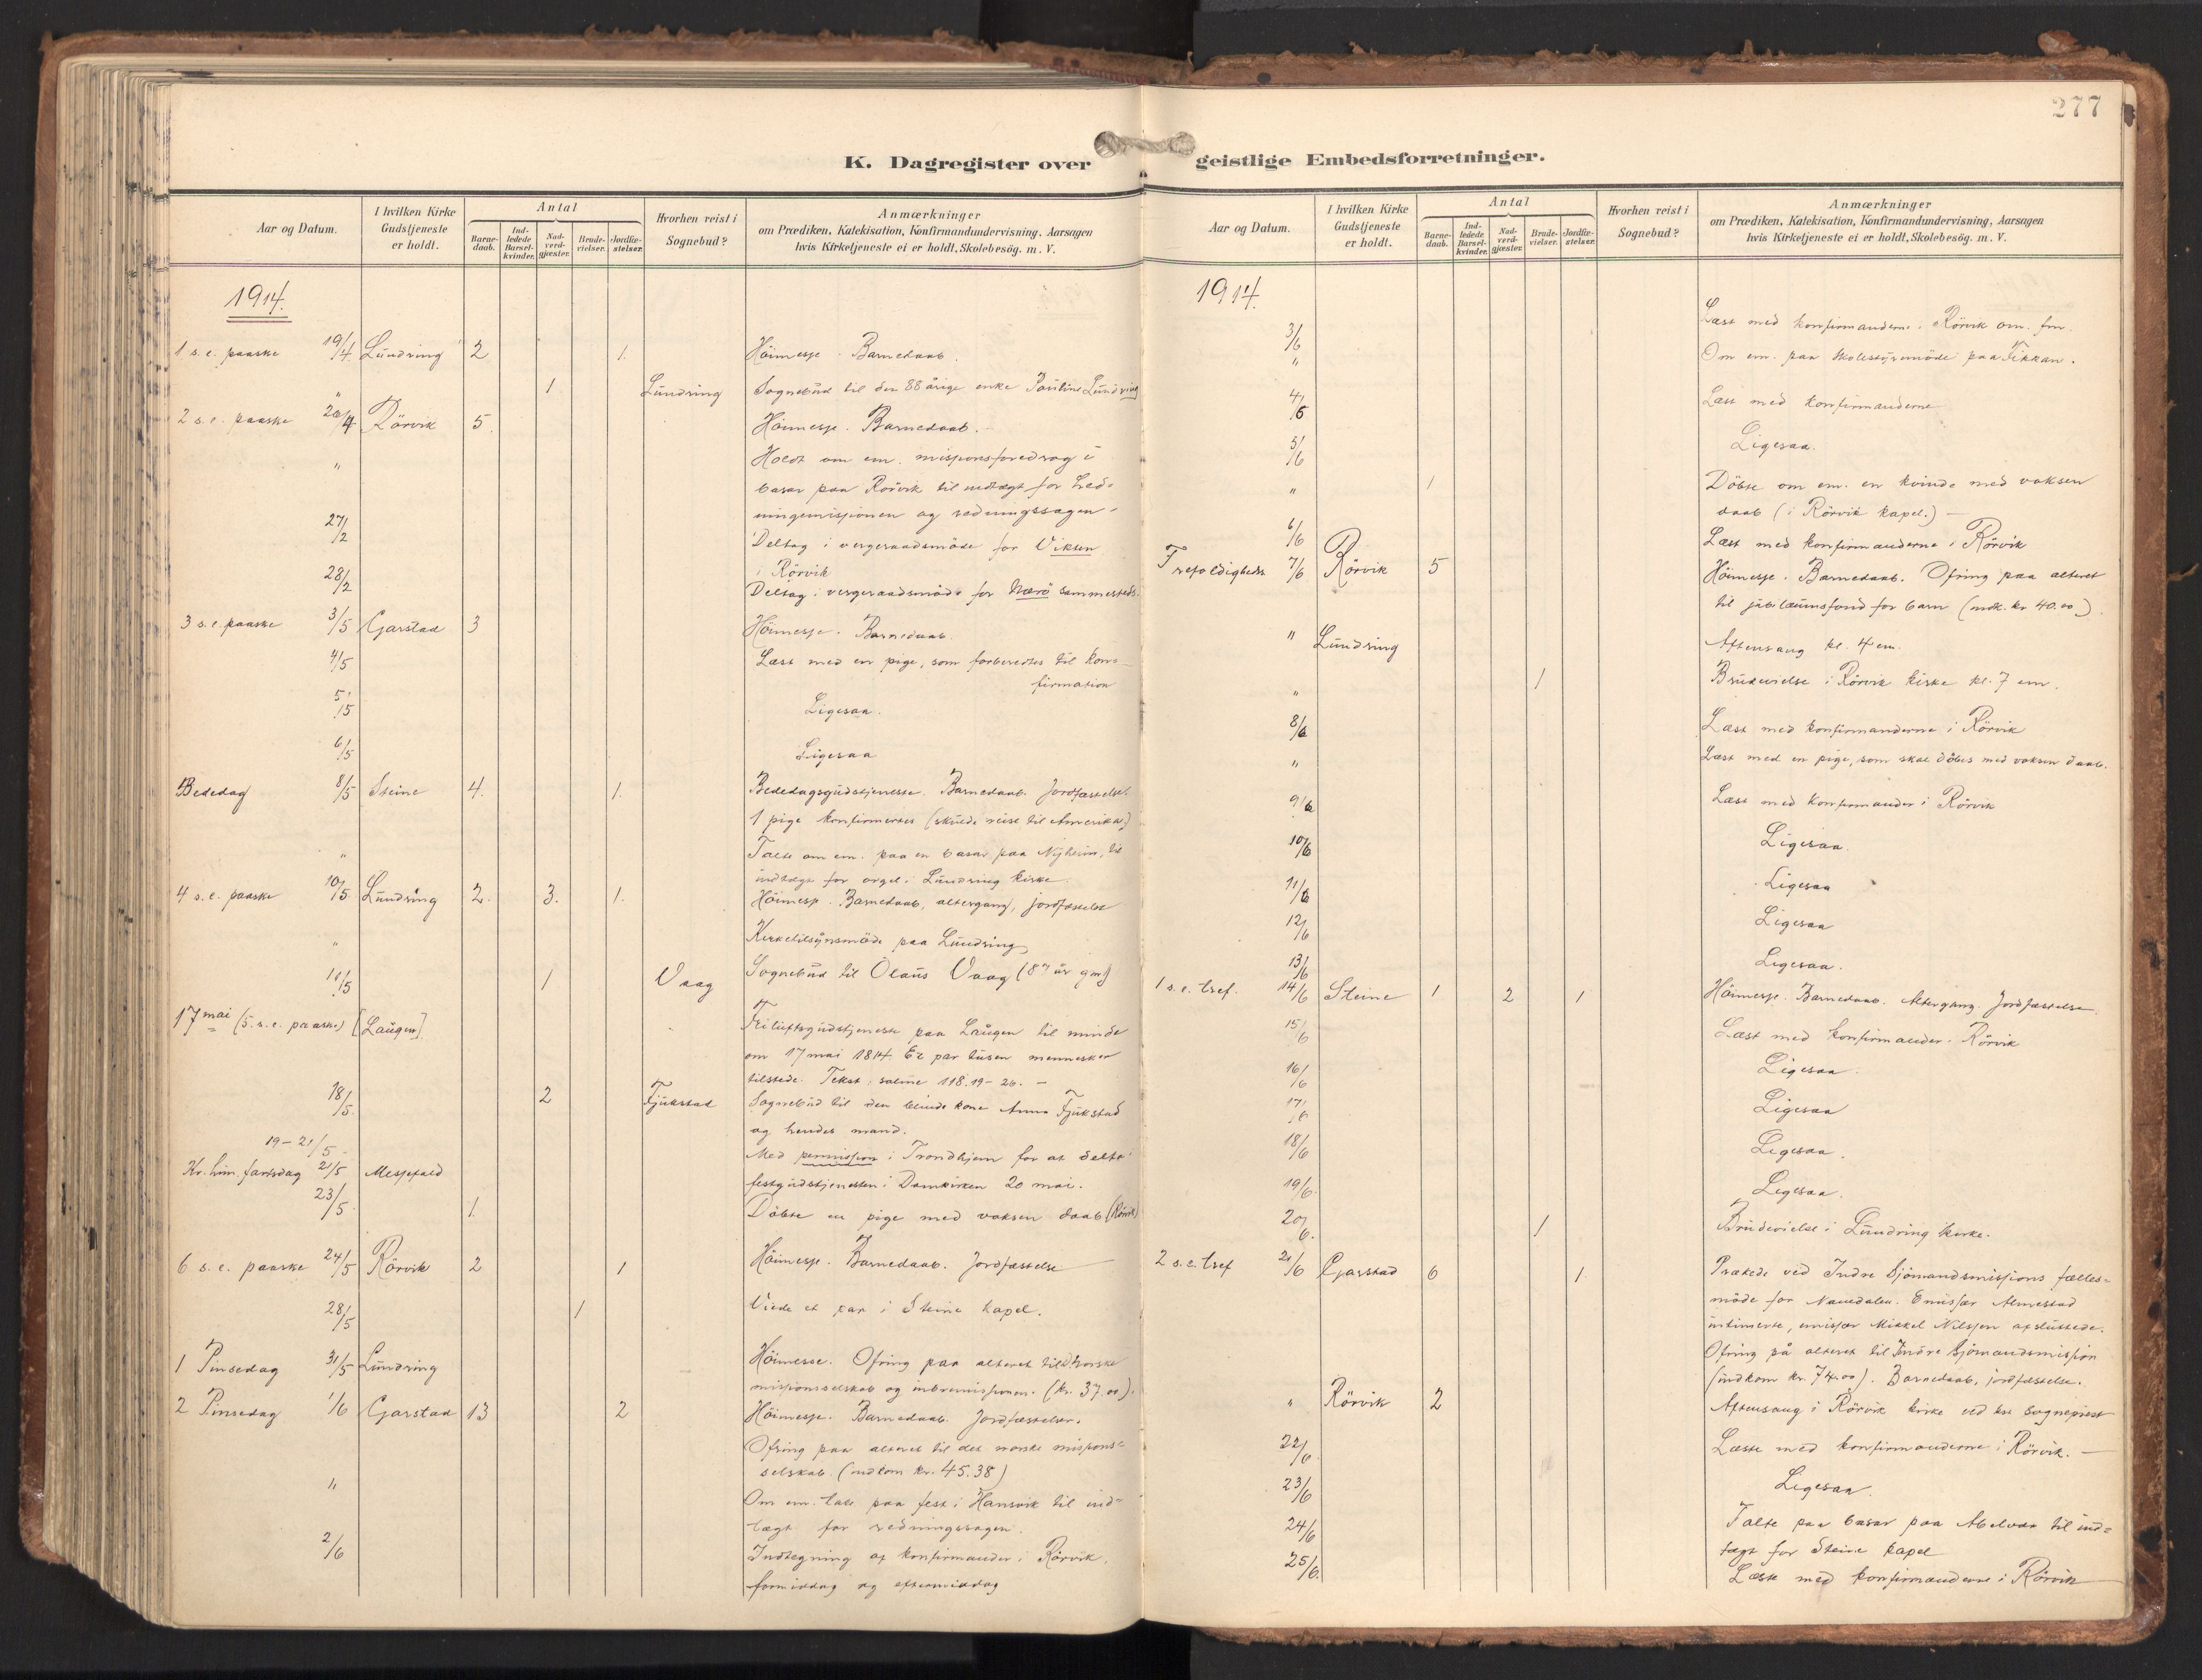 277
K. Dagregister over
geistlige Embedsforretninger.
Aar og Datum.
I hvilken Kirke Gudstjeneste er holdt.
Antal
Barne-daab.
Ind-ledede Barsel-kvinder.
Nad-verd-gjæster.
Brude-vielser.
Jordfæ-stelser.
Hvorhen reist i Sognebud?
Anmærkninger
om Prædiken, Katekisation, Konfirmandundervisning, Aarsagen
hvis Kirketjeneste ei er holdt, Skolebesög. m. V.
1914.
1 s. e. paaske 19/4 Lundring 2 1. Höimesse. Barnedaab.
" 1 Lundring Sognebud til den 88 årige enke Pauline Lundring
2 s. e. paaske 26/4 Rörvik 5. Höimesse. Barnedaab.
" Holdt om em. missionsforedrag i
basar paa Rörvik til indtægt for hed-
ningemissionen og redningssagen.
27/2 Deltog i vergeraadsmöde for Vikten
i Rörvik
28/2 Deltog i vergeraadsmöde for Nærö sammesteds.
3 s. e. paaske 3/5 Garstad 3 Höimesse. Barnedaab.
4/5 Læst med en pige, som forberedtes til kon-
firmation
5/5 Ligesaa.
6/5 Ligesaa
Bededag 8/5 Steine 4. 1. Bededagsgudstjeneste. Barnedaab. Jordfæstelse.
1 pige konfirmertes (skulde reise til Amerika)
" Talte om em. paa en basar paa Nyheim, til
indtægt for orgel i Lundring kirke.
4 s. e. paaske 10/5 Lundring 2. 3. 1. Höimesse. Barnedaab, altergang, jordfæstelse
" Kirketilsynsmöde paa Lundring
11/5 1 Vaag Sognebud til Olaus Vaag (87 år gml)
17 mai (5. s. e. paaske) [Laugen]. Friluftsgudstjeneste paa Laugen til minde
om 17 mai 1814. Et par tusen mennesker
tilstede. Tekst: salme 118. 19-26. -
18/5. 2 Fjukstad Sognebud til den blinde kone Anna Fjukstad
og hendes mand.
19-21/5. Med permission i Trondhjem for at delta i
Kr. him. fartsdag 21/5 Messefald festgudstjenesten i Domkirken 20 mai.
23/5. 1. Döbte en pige med voksen daab (Rörvik)
6 s. e. paaske 24/5 Rörvik 2 1 Höimesse. Barnedaab. Jordfæstelse
28/5 1 Viede et par i Steine kapel.
1 Pinsedag 31/5 Lundring Höimesse. Ofring paa alteret til d. norske
missionsselskab og indremissionen. (kr. 37.00).
2 Pinsedag 1/6 Garstad 13 2 Höimesse. Barnedaab. Jordfæstelser.
Ofring paa alteret til det norske missions-
selskab. (indkom kr. 45.38)
" Om em. tale paa fest i Hansvik til ind-
tægt for redningssagen.
2/6 Indtegning af konfirmander i Rörvik.
formiddag og eftermiddag
Aar og Datum.
I hvilken Kirke Gudstjeneste er holdt.
Antal
Barne-daab.
Ind-ledede Barsel-kvinder.
Nad-verd-gjæster.
Brude-vielser.
Jordfæ-stelser.
Hvorhen reist i Sognebud?
Anmærkninger
om Prædiken, Katekisation, Konfirmandundervisning, Aarsagen
hvis Kirketjeneste ei er holdt, Skolebesög. m. V.
1914.
3/6 Læst med konfirmanderne i Rörvik om. fm.
" Om em. paa skolestyremöde paa
4/6 Læst med konfirmanderne
5/6 Ligesaa.
" 1 Döbte om em. en kvinde med voksen
daab (i Rörvik kapel.) -
6/6 Læst med konfirmanderne i Rörvik
Trefoldigheds 7/6 Rörvik 5 Höimesse. Barnedaab. Ofring paa alteret
til jubilæumsfond for barn (indk. kr. 40.00).
" Lundring Aftensang kl. 4 em.
" 1 Brudevielse i Rörvik kirke kl. 7 em.
8/6 Læst med konfirmanderne i Rörvik
" Læst med en pige, som skal döbes med voksen daab.
9/6 Læst med konfirmander i Rörvik
10/6 Ligesaa.
11/6 Ligesaa
12/6 Ligesaa
13/6 Ligesaa.
1 s. e. tref. 14/6 Steine 1 2 1 Höimesse. Barnedaab. Altergang. Jordfæstelse.
15/6 Læst med konfirmander i Rörvik
16/6 Ligesaa.
17/6 Ligesaa
18/6 Ligesaa.
19/6. Ligesaa.
20/6. 1 Brudevielse i Lundring kirke.
2 s. e. tref 21/6 Garstad 6 1 Prækede ved Indre Sjömandsmissions fælles-
möde for Namdalen. Emissær Almestad
intimerte, emissær Mikkel Nilssen afsluttede.
Ofring på alteret til Indre Sjömandsmission
(indkom kr. 74.00). Barnedaab, jordfæstelse.
" Rörvik 2 Aftensang i Rörvik kirke ved hr sogneprest
22/6. Læste med konfirmanderne i Rörvik. -
23/6 Ligesaa.
24/6 Talte paa basar paa Abelvær til ind-
tægt for Steine kapel
25/6. Læste med konfirmanderne i Rörvik